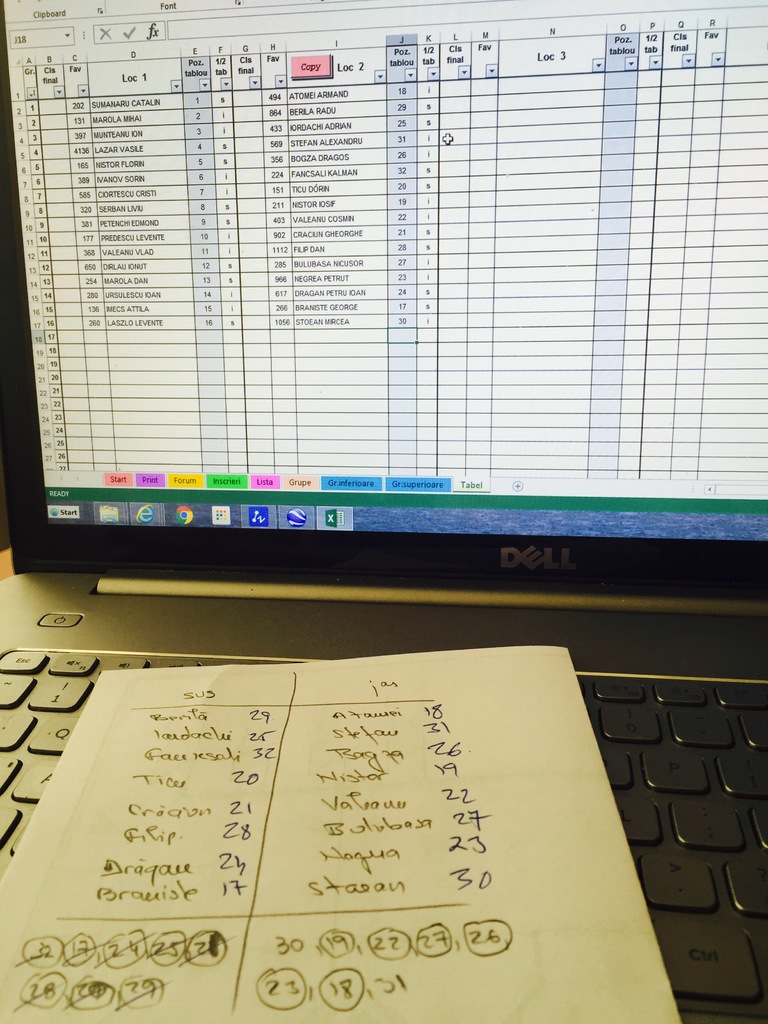 Clipboard Font
J18 fx
A B C D E F G H I J K L M N O P Q R
Gr. Cls final Fav Loc 1 Poz. tablou 1/2 tab Cls final Fav Copy Loc 2 Poz. tablou 1/2 tab Cls final Fav Loc 3 Poz. tablou 1/2 tab Cls final Fav
1
2 1 202 SUMANARU CATALIN 1 s 494 ATOMEI ARMAND 18 i
3 2 131 MAROLA MIHAI 2 i 864 BERILA RADU 29 s
4 3 397 MUNTEANU ION 3 i 433 IORDACHI ADRIAN 25 s
5 4 4136 LAZAR VASILE 4 s 569 STEFAN ALEXANDRU 31 i
6 5 165 NISTOR FLORIN 5 s 356 BOGZA DRAGOS 26 i
7 6 389 IVANOV SORIN 6 i 224 FANCSALI KALMAN 32 s
8 7 585 CIORTESCU CRISTI 7 i 151 TICU DÓRIN 20 s
9 8 320 SERBAN LIVIU 8 s 211 NISTOR IOSIF 19 i
10 9 381 PETENCHI EDMOND 9 s 403 VALEANU COSMIN 22 i
11 10 177 PREDESCU LEVENTE 10 i 902 CRACIUN GHEORGHE 21 s
12 11 368 VALEANU VLAD 11 i 1112 FILIP DAN 28 s
13 12 650 DIRLAU IONUT 12 s 285 BULUBASA NICUSOR 27 i
14 13 254 MAROLA DAN 13 s 966 NEGREA PETRUT 23 i
15 14 280 URSULESCU IOAN 14 i 617 DRAGAN PETRU IOAN 24 s
16 15 136 IMECS ATTILA 15 i 266 BRANISTE GEORGE 17 s
17 16 260 LASZLO LEVENTE 16 s 1056 STOEAN MIRCEA 30 i
18 17
19 18
20 19
21 20
22 21
23 22
24 23
25 24
26 25
27 26
27
Start Print Forum Inscrieri Lista Grupe Gr.inferioare Gr.superioare Tabel
READY
Start
DELL
Esc
! 1
Q
A
P
Ctrl
sus jos
Berilă 29 Atomei 18
Iordachi 25 Stefan 31
Fancsali 32 Bogza 26
Ticu 20 Nistor 19
Crăciun 21 Valeanu 22
Filip 28 Bulubasa 27
Drăgan 24 Negrea 23
Braniste 17 Stoean 30
32, 17, 24, 25, 21 30, 19, 22, 27, 26
28, 20, 29 23, 18, 31